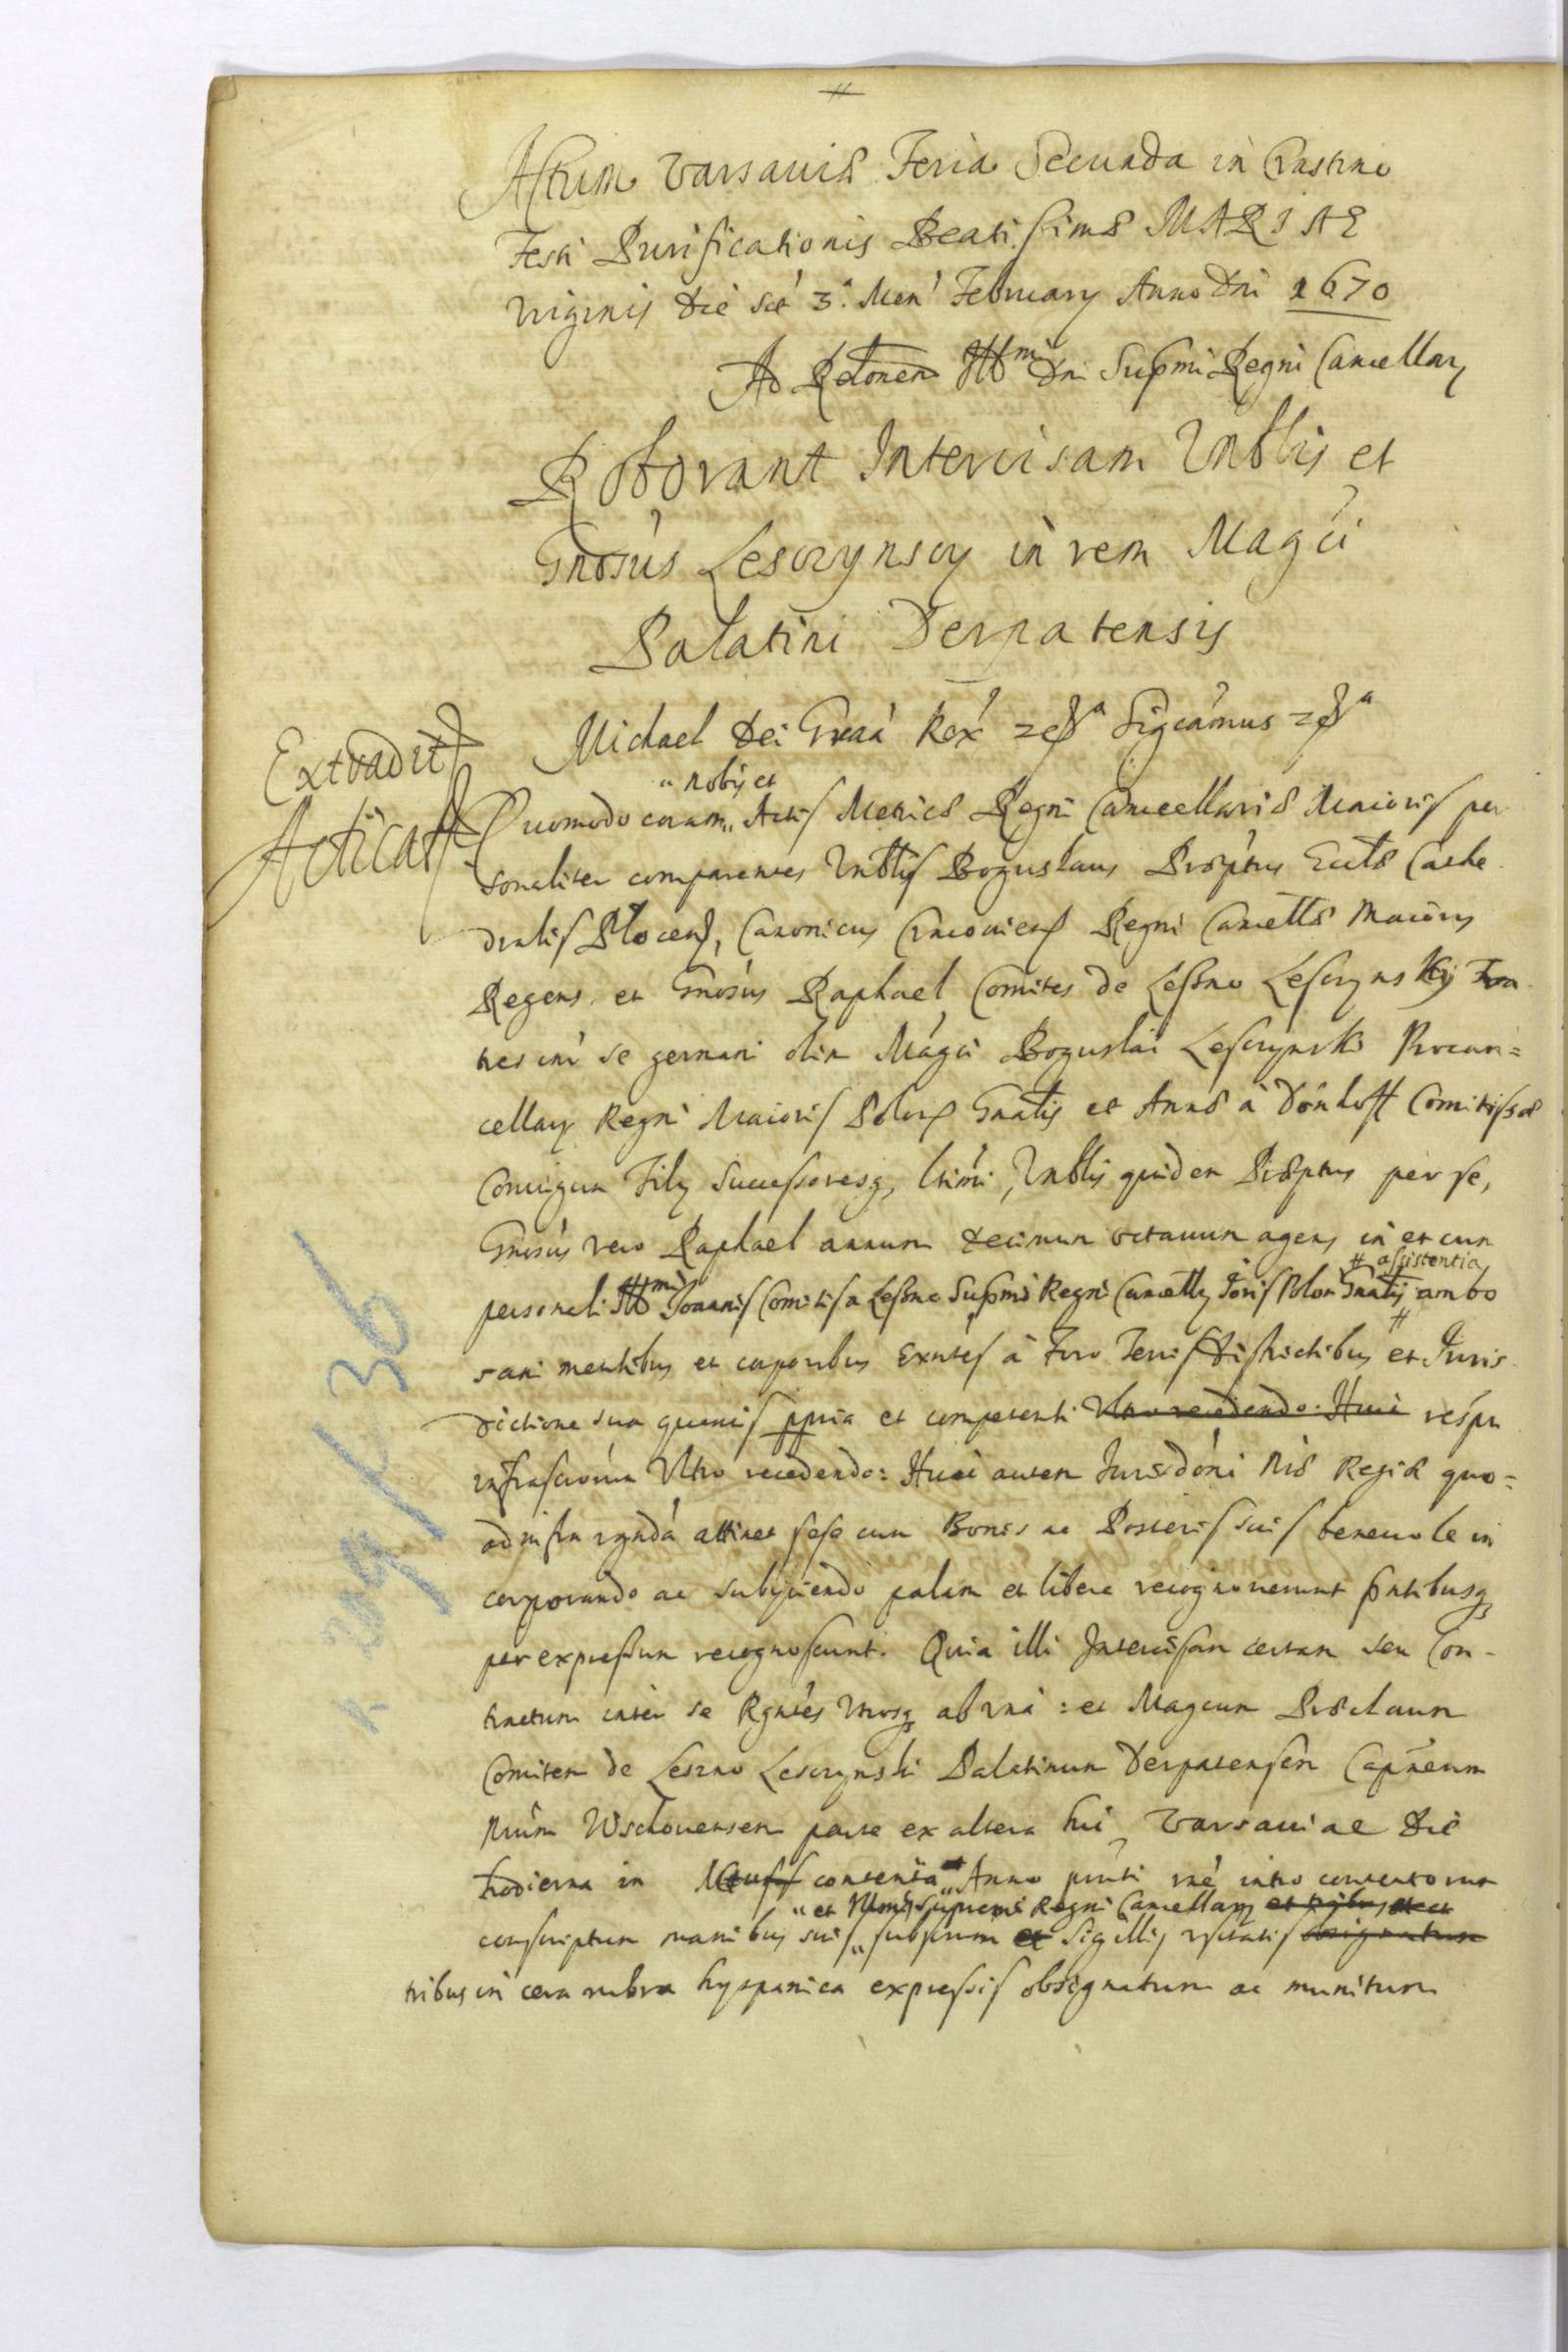 Actum Varsaviæ Feria Secunda in Crastino
Festi Purificationis Beatissimæ MARIAE
Virginis die scẽ 3ª Men' February Anno Dni 1670
Ad Rełłonem Illmi Dni Supmi Regni Cancellary
Roborant Intercisam Vnblis et
Gnosus Lesczynscy in rem Magci
Palatini Derpatensis
Extradit
Acticat
Michael Dei Graa Rex &ª Sigcamus &ª
" nobis et
Quomodo coram " Actis Metrices Regni Cancellariæ Maioris per
sonaliter comparentes Vnblis Boguslaus Præptus Eccłæ Cathe
dralis Plocen, Canonicus Cracovien Regni Cancellæ Maioris
Regens et Gnosus Raphael Comites de Lessno Lesczynskj Fra
tres int' se germani olim Magci Boguslai Lesczynski Procan=
cellary Regni Maioris Polon Gnalis et Annæ à Dönhoff Comitissæ
Coniugum Filij Successoresq, ltimi, Vnblis quidem Præptus per se,
Gnosus vero Raphael annum decimum octauum agens in et cum
# assistentia
personali Illmi Joannis Comitis a Lessno Supmi Regni Cancelly Joris Polon Gnalis # ambo
sani mentibus et corporibus Exntes à Foro Terris districtibus et Juris
dictione sua quauis ppria et competenti Vltro recedendo. Huic respu
infrascriorum Vltro recedendo: Huic autem Jurisdoni Næ Regiæ quo=
ad infra rgnda attinet sese cum Bonis ac Posteris suis beneuole in
corporando ac subijciendo palam et libere recognouerunt pntibusq
per expressum recognoscunt. Quia illi Intercisam certam seu Con-
tractum inter se Rgntes Vtrosq ab vna: et Magcum Præclaum
Comitem de Leszno Lesczynski Palatinum Derpatensem Capneum
nrum Wschouensem parte ex altera hic Varsauiae die
hodierna in contenta " Anno pnti rne intro contentorum
" et Illmi Supremi Regni Cancellary
conscriptum manibus suis " subscrum et Sigillis vsitatis obsignatum
tribus in cera rubra hyspanica expressis obsignatum ac munitum